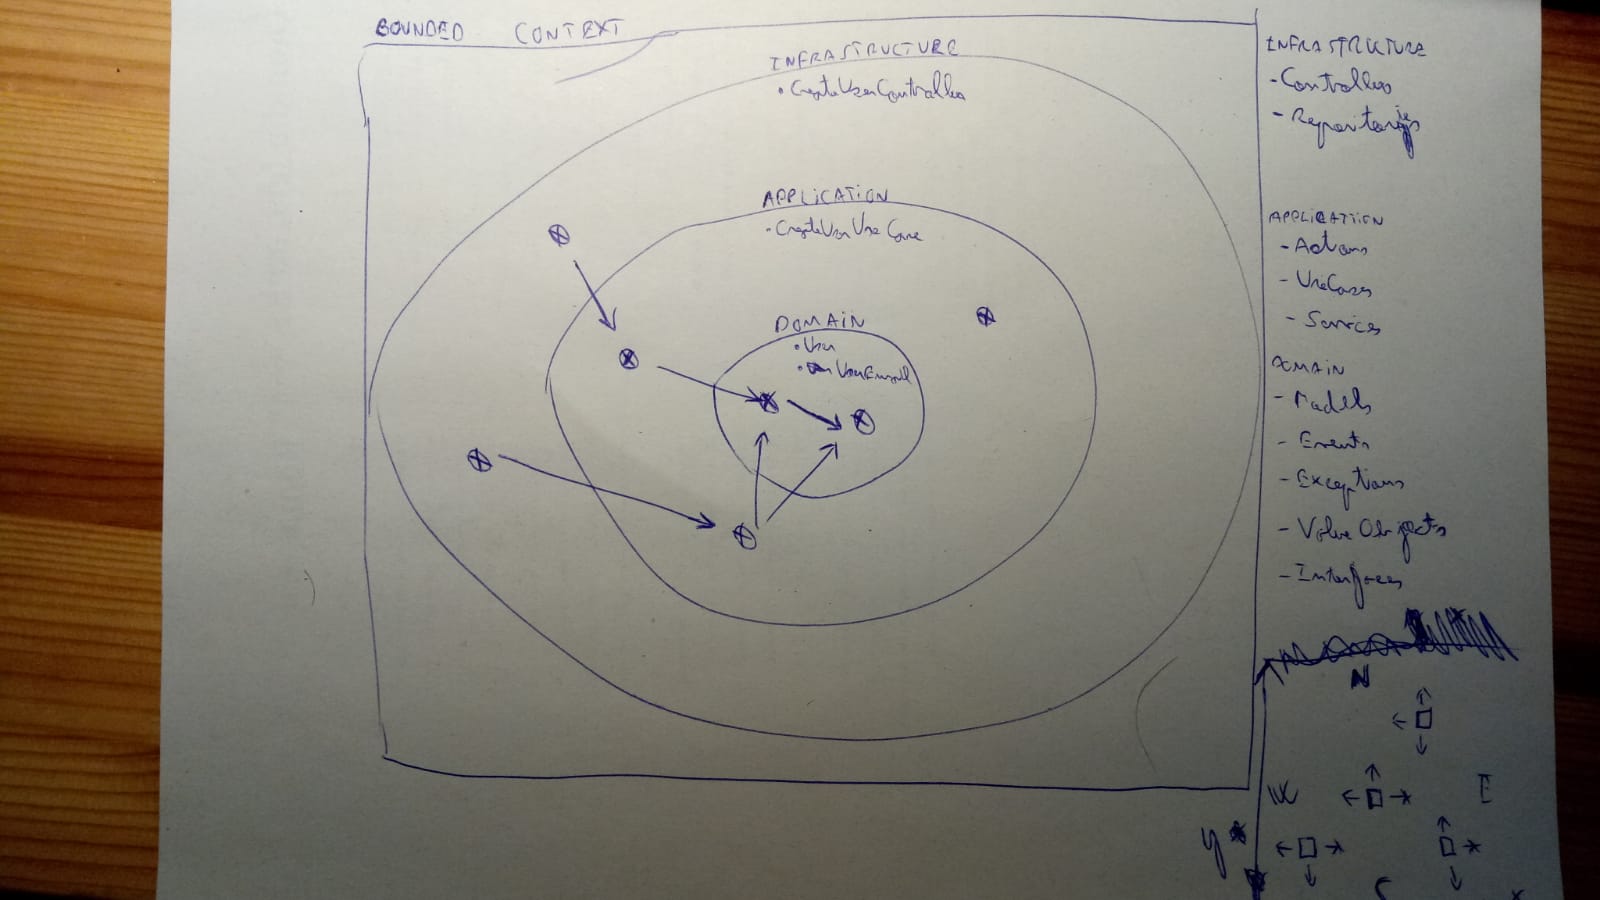 BOUNDED CONTEXT
INFRASTRUCTURE
• CreateUserController
APPLICATION
• CreateUserUseCase
DOMAIN
• User
• UserEmail
INFRASTRUCTURE
- Controllers
- Repositories
APPLICATION
- Actions
- UseCases
- Services
DOMAIN
- Models
- Events
- Exceptions
- Value Objects
- Interfaces
N
W E
y
S x